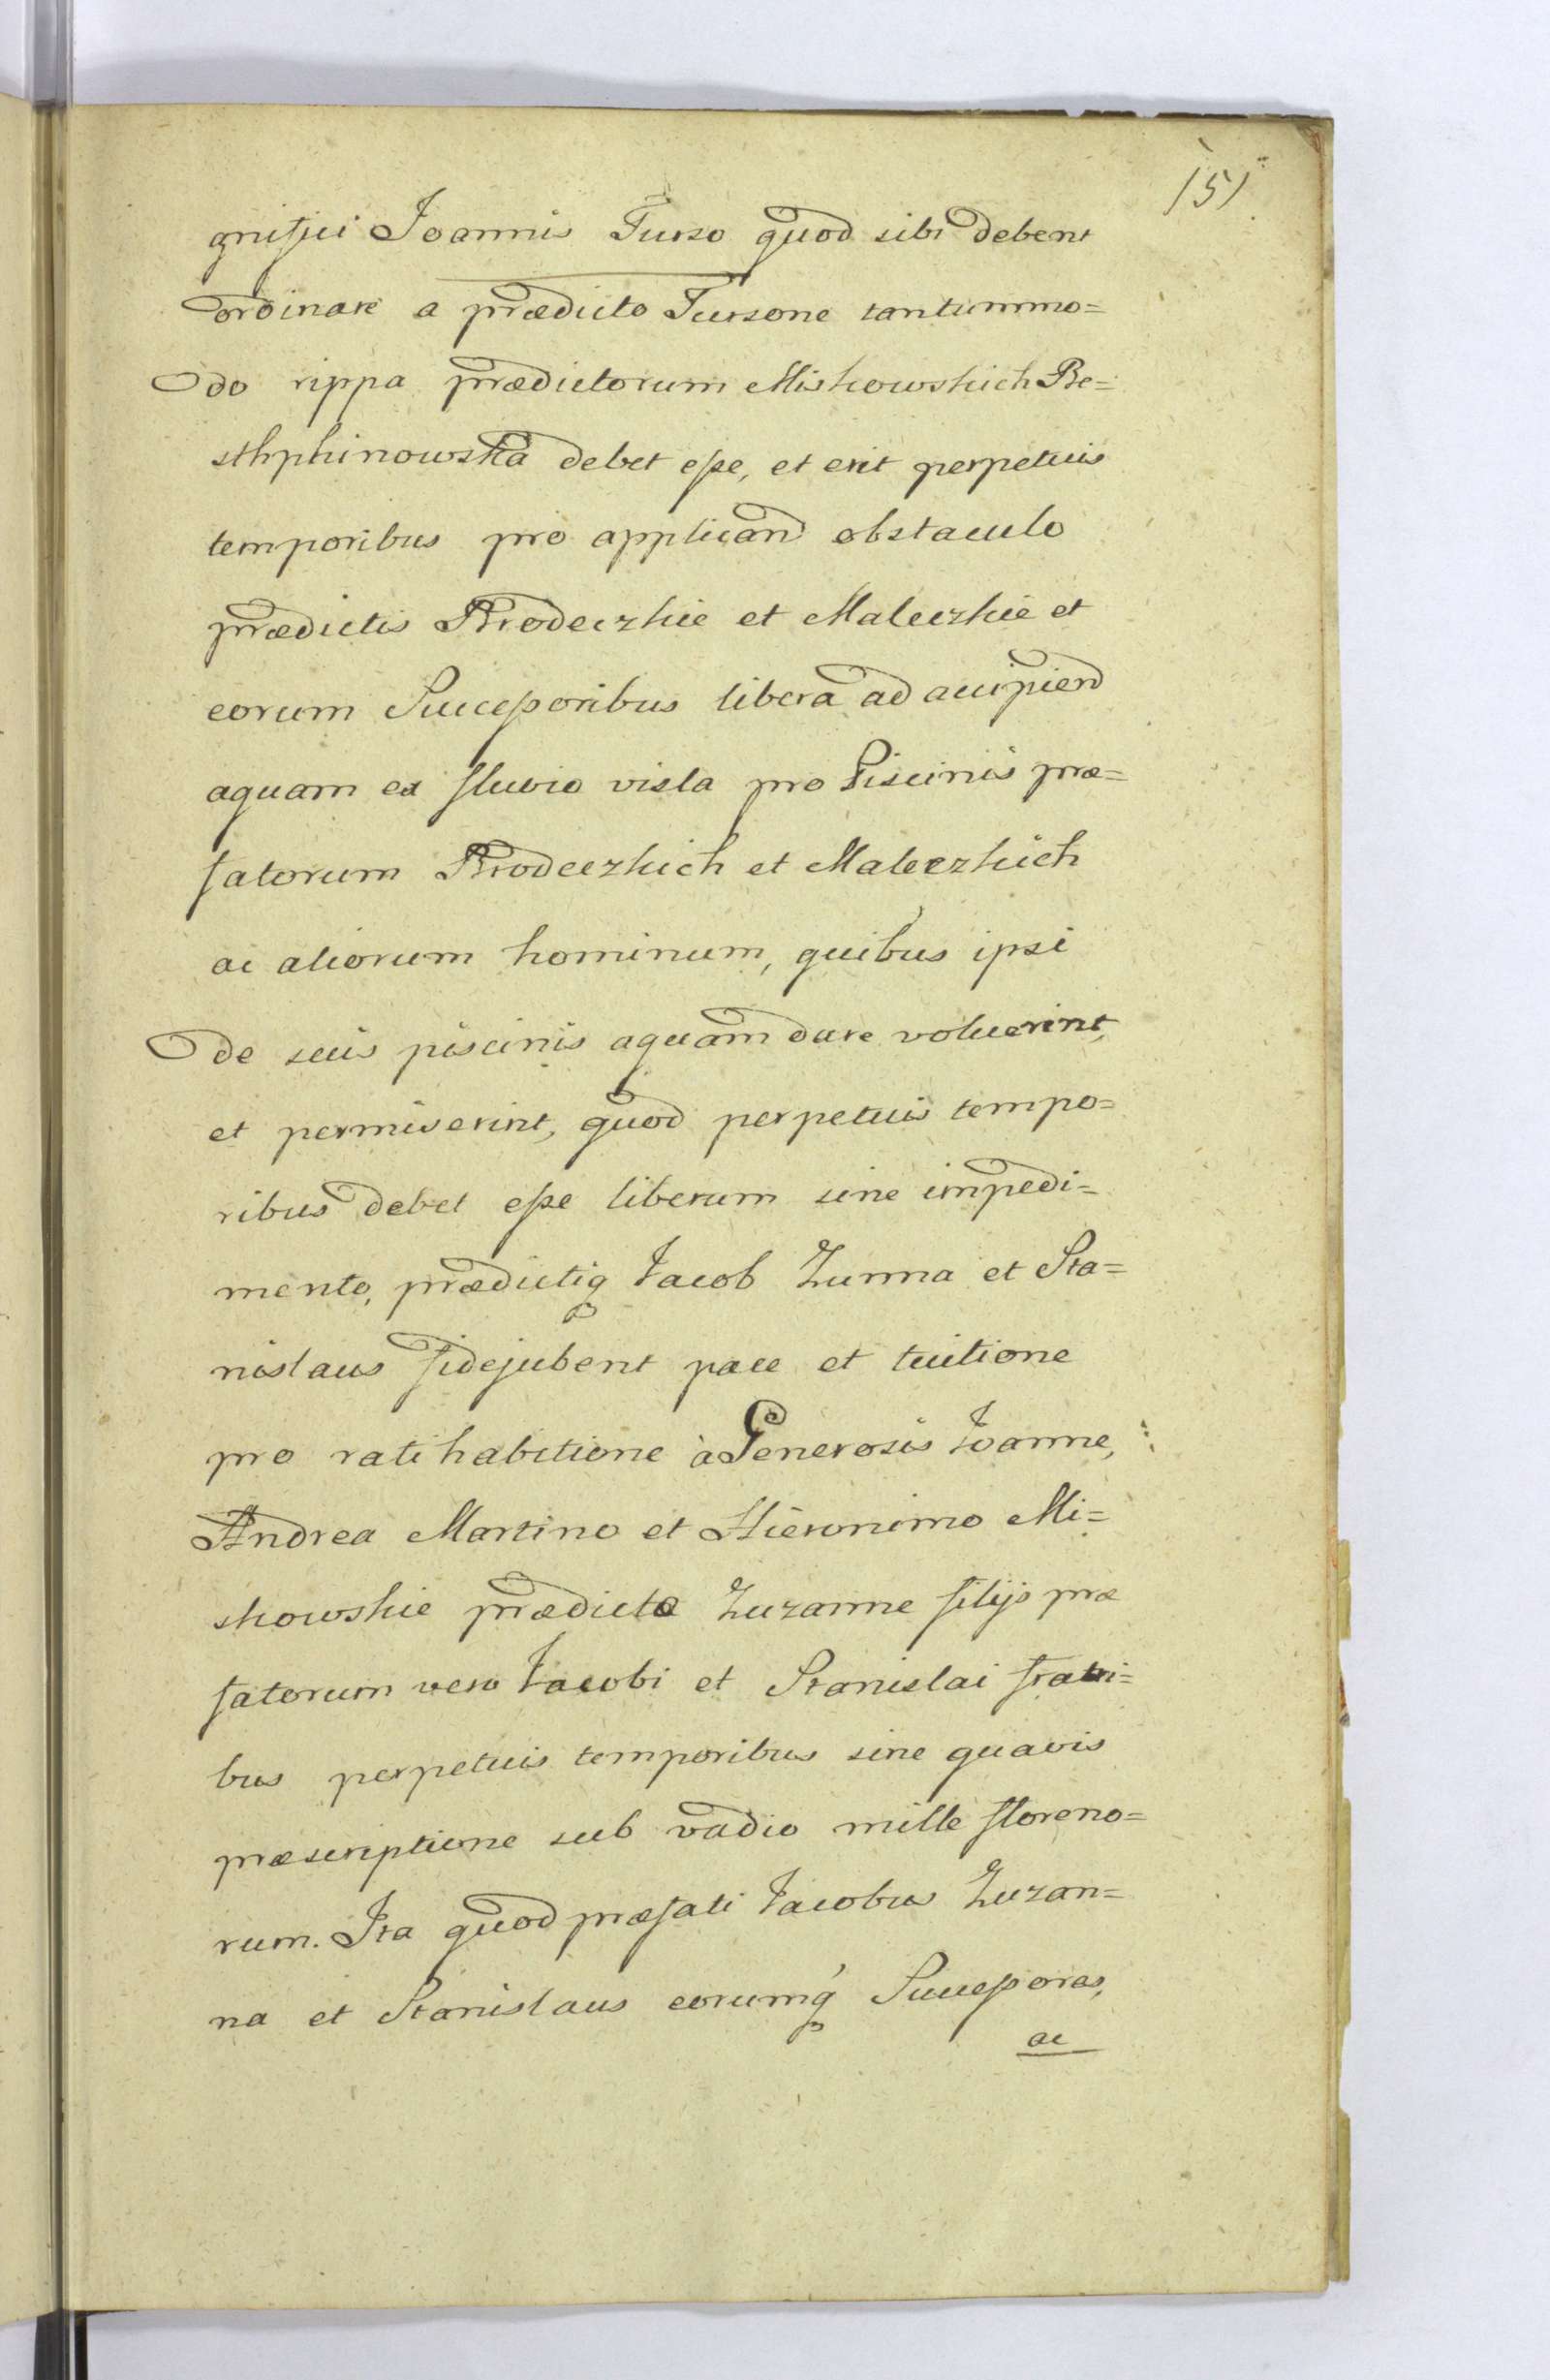 151
gnifici Joannis Turso quod sibi debent
ordinare a prædicto Tursone tantummo=
do rippa prædictorum Miskowskich Be=
sthphinowska debet esse, et erit perpetuis
temporibus pro applicand obstaculo
prædictis Brodeczkie et Maleczkie et
eorum Successoribus libera ad accipiend
aquam ex fluvio visla pro Piscinis præ=
fatorum Brodeczkich et Maleczkich
ac aliorum hominum, quibus ipsi
de suis piscinis aquam dare voluerint,
et permiserint, quod perpetuis tempo=
ribus debet esse liberum sine impedi=
mento, prædictiq Jacob Zunna et Sta=
nislaus fidejubent pace et tuitione
pro ratihabitione à Generosis Joanne,
Andrea Martino et Hieronimo Mi=
skowskie prædicta Zuzanne filijs præ
fatorum vero Jacobi et Stanislai fratri=
bus perpetuis temporibus sine quavis
præscriptione sub vadio mille floreno=
rum. Ita quod præfati Jacobus Zuzan=
na et Stanislaus eorumq Successores,
ac